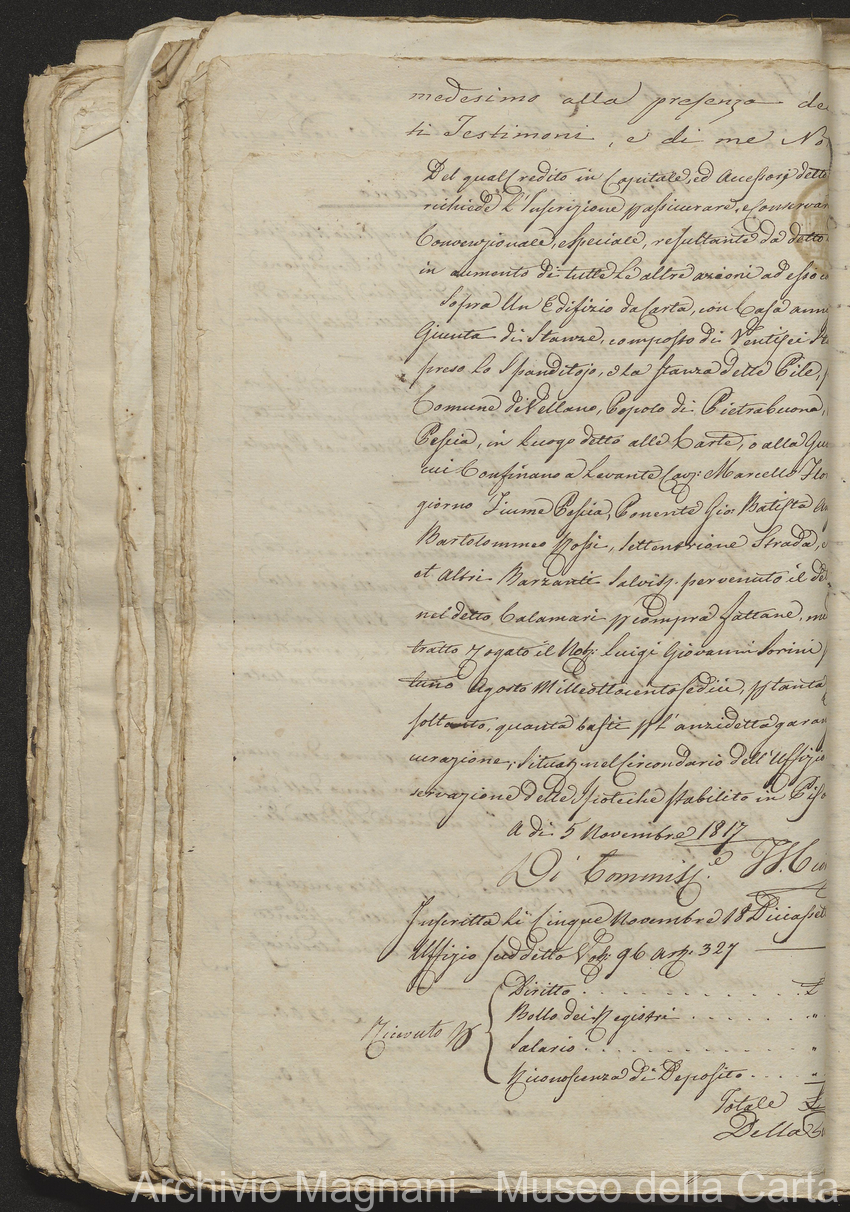 medesimo alla presenza de
ti Testimoni, e di me No
Del qual Credito in Capitale, ed Accessorj detto
richiede l'Inscrizione p assicurare, e conservar
Convenzionale, e speciale, resultante da detto
in aumento di tutte le altre azioni ad esso
Sopra Un Edifizio da Carta, con Casa anne
Giunta di Stanze, composto di Ventisei St
preso lo Spanditojo, e la stanza delle Pile,
Comune di Vellano, Popolo di Pietrabuona,
Pescia, in Luogo detto alle Carte, o alla Gu
cui Confinano a Levante Cav: Marcello Flo
giorno Fiume Pescia, Ponente Gio: Batista
Bartolommeo Rossi, Settentrione Strada,
et Altri Barzanti Salvis: pervenuto il de
nel detto Calamari p compra fattane, me
tratto rogato il Not: Luigi Giovanni Sorini
Agosto Milleottocentosedici, p tanta
soltanto, quanta basti p l'anzidetta garan
curazione, Situat: nel Circondario dell'Uffizio
servazione delle Ipoteche stabilito in Pisa
A di 5 Novembre 1817
Di Commiss:e
Inscritta li Cinque Novembre 18 Diciasset
Uffizio suddetto Vol: 96 Art: 327
Diritto £
Bollo dei Registri "
Ricevuto p
Salario "
Riconoscenza di Deposito "
Totale £
Della
Archivio Magnani - Museo della Carta